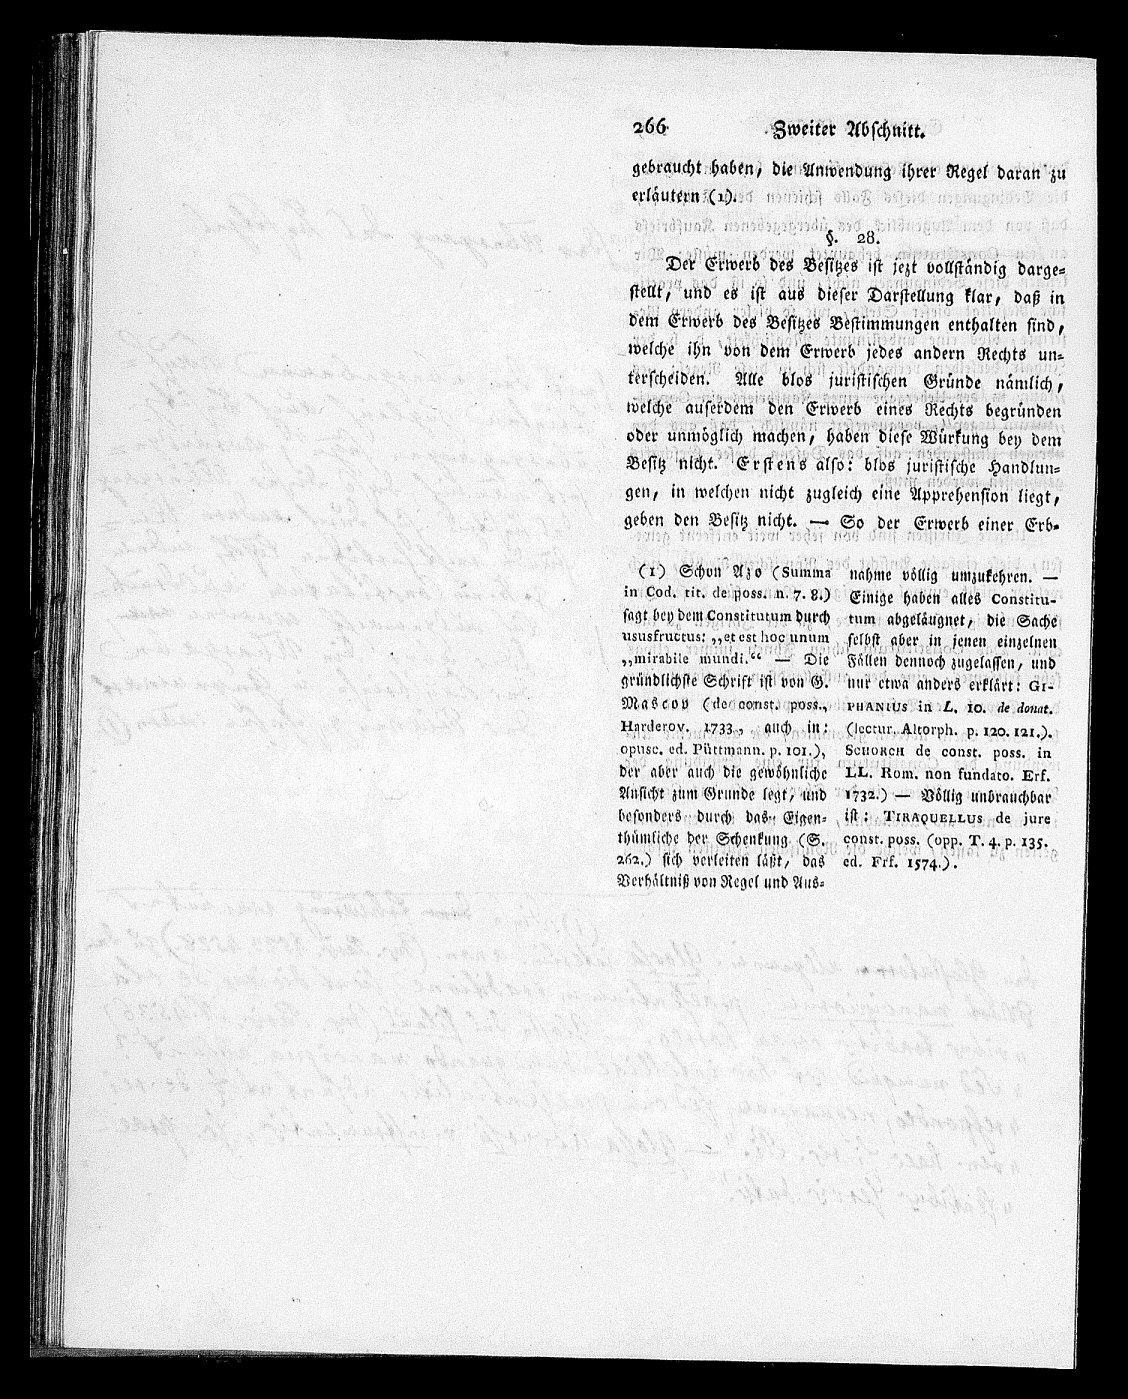 266 Zweiter Abschnitt.
gebraucht haben, die Anwendung ihrer Regel daran zu
erläutern (1).
§. 28.
Der Erwerb des Besitzes ist jezt vollständig darge=
stellt, und es ist aus dieser Darstellung klar, daß in
dem Erwerb des Besitzes Bestimmungen enthalten sind,
welche ihn von dem Erwerb jedes andern Rechts un=
terscheiden. Alle blos juristischen Gründe nämlich,
welche auserdem den Erwerb eines Rechts begründen
oder unmöglich machen, haben diese Würkung bey dem
Besitz nicht. Erstens also: blos juristische Handlun=
gen, in welchen nicht zugleich eine Apprehension liegt,
geben den Besitz nicht. — So der Erwerb einer Erb=
(1) Schon Azo (Summa
in Cod. tit. de poss. n. 7. 8.)
sagt bey dem Constitutum durch
ususfructus: „et est hoc unum
„mirabile mundi.“ — Die
gründlichste Schrift ist von G.
Mascov (de const. poss.,
Harderov. 1733., auch in:
opusc. ed. Püttmann. p. 101.),
der aber auch die gewöhnliche
Ansicht zum Grunde legt, und
besonders durch das Eigen=
thümliche der Schenkung (S.
262.) sich verleiten läßt, das
Verhältniß von Regel und Aus=
nahme völlig umzukehren. —
Einige haben alles Constitu-
tum abgeläugnet, die Sache
selbst aber in jenen einzelnen
Fällen dennoch zugelassen, und
nur etwa anders erklärt: GI-
PHANIUS in L. 10. de donat.
(lectur. Altorph. p. 120. 121.).
SCHORCH de const. poss. in
LL. Rom. non fundato. Erf.
1732.) — Völlig unbrauchbar
ist: TIRAQUELLUS de jure
const. poss. (opp. T. 4. p. 135.
ed. Frf. 1574.).